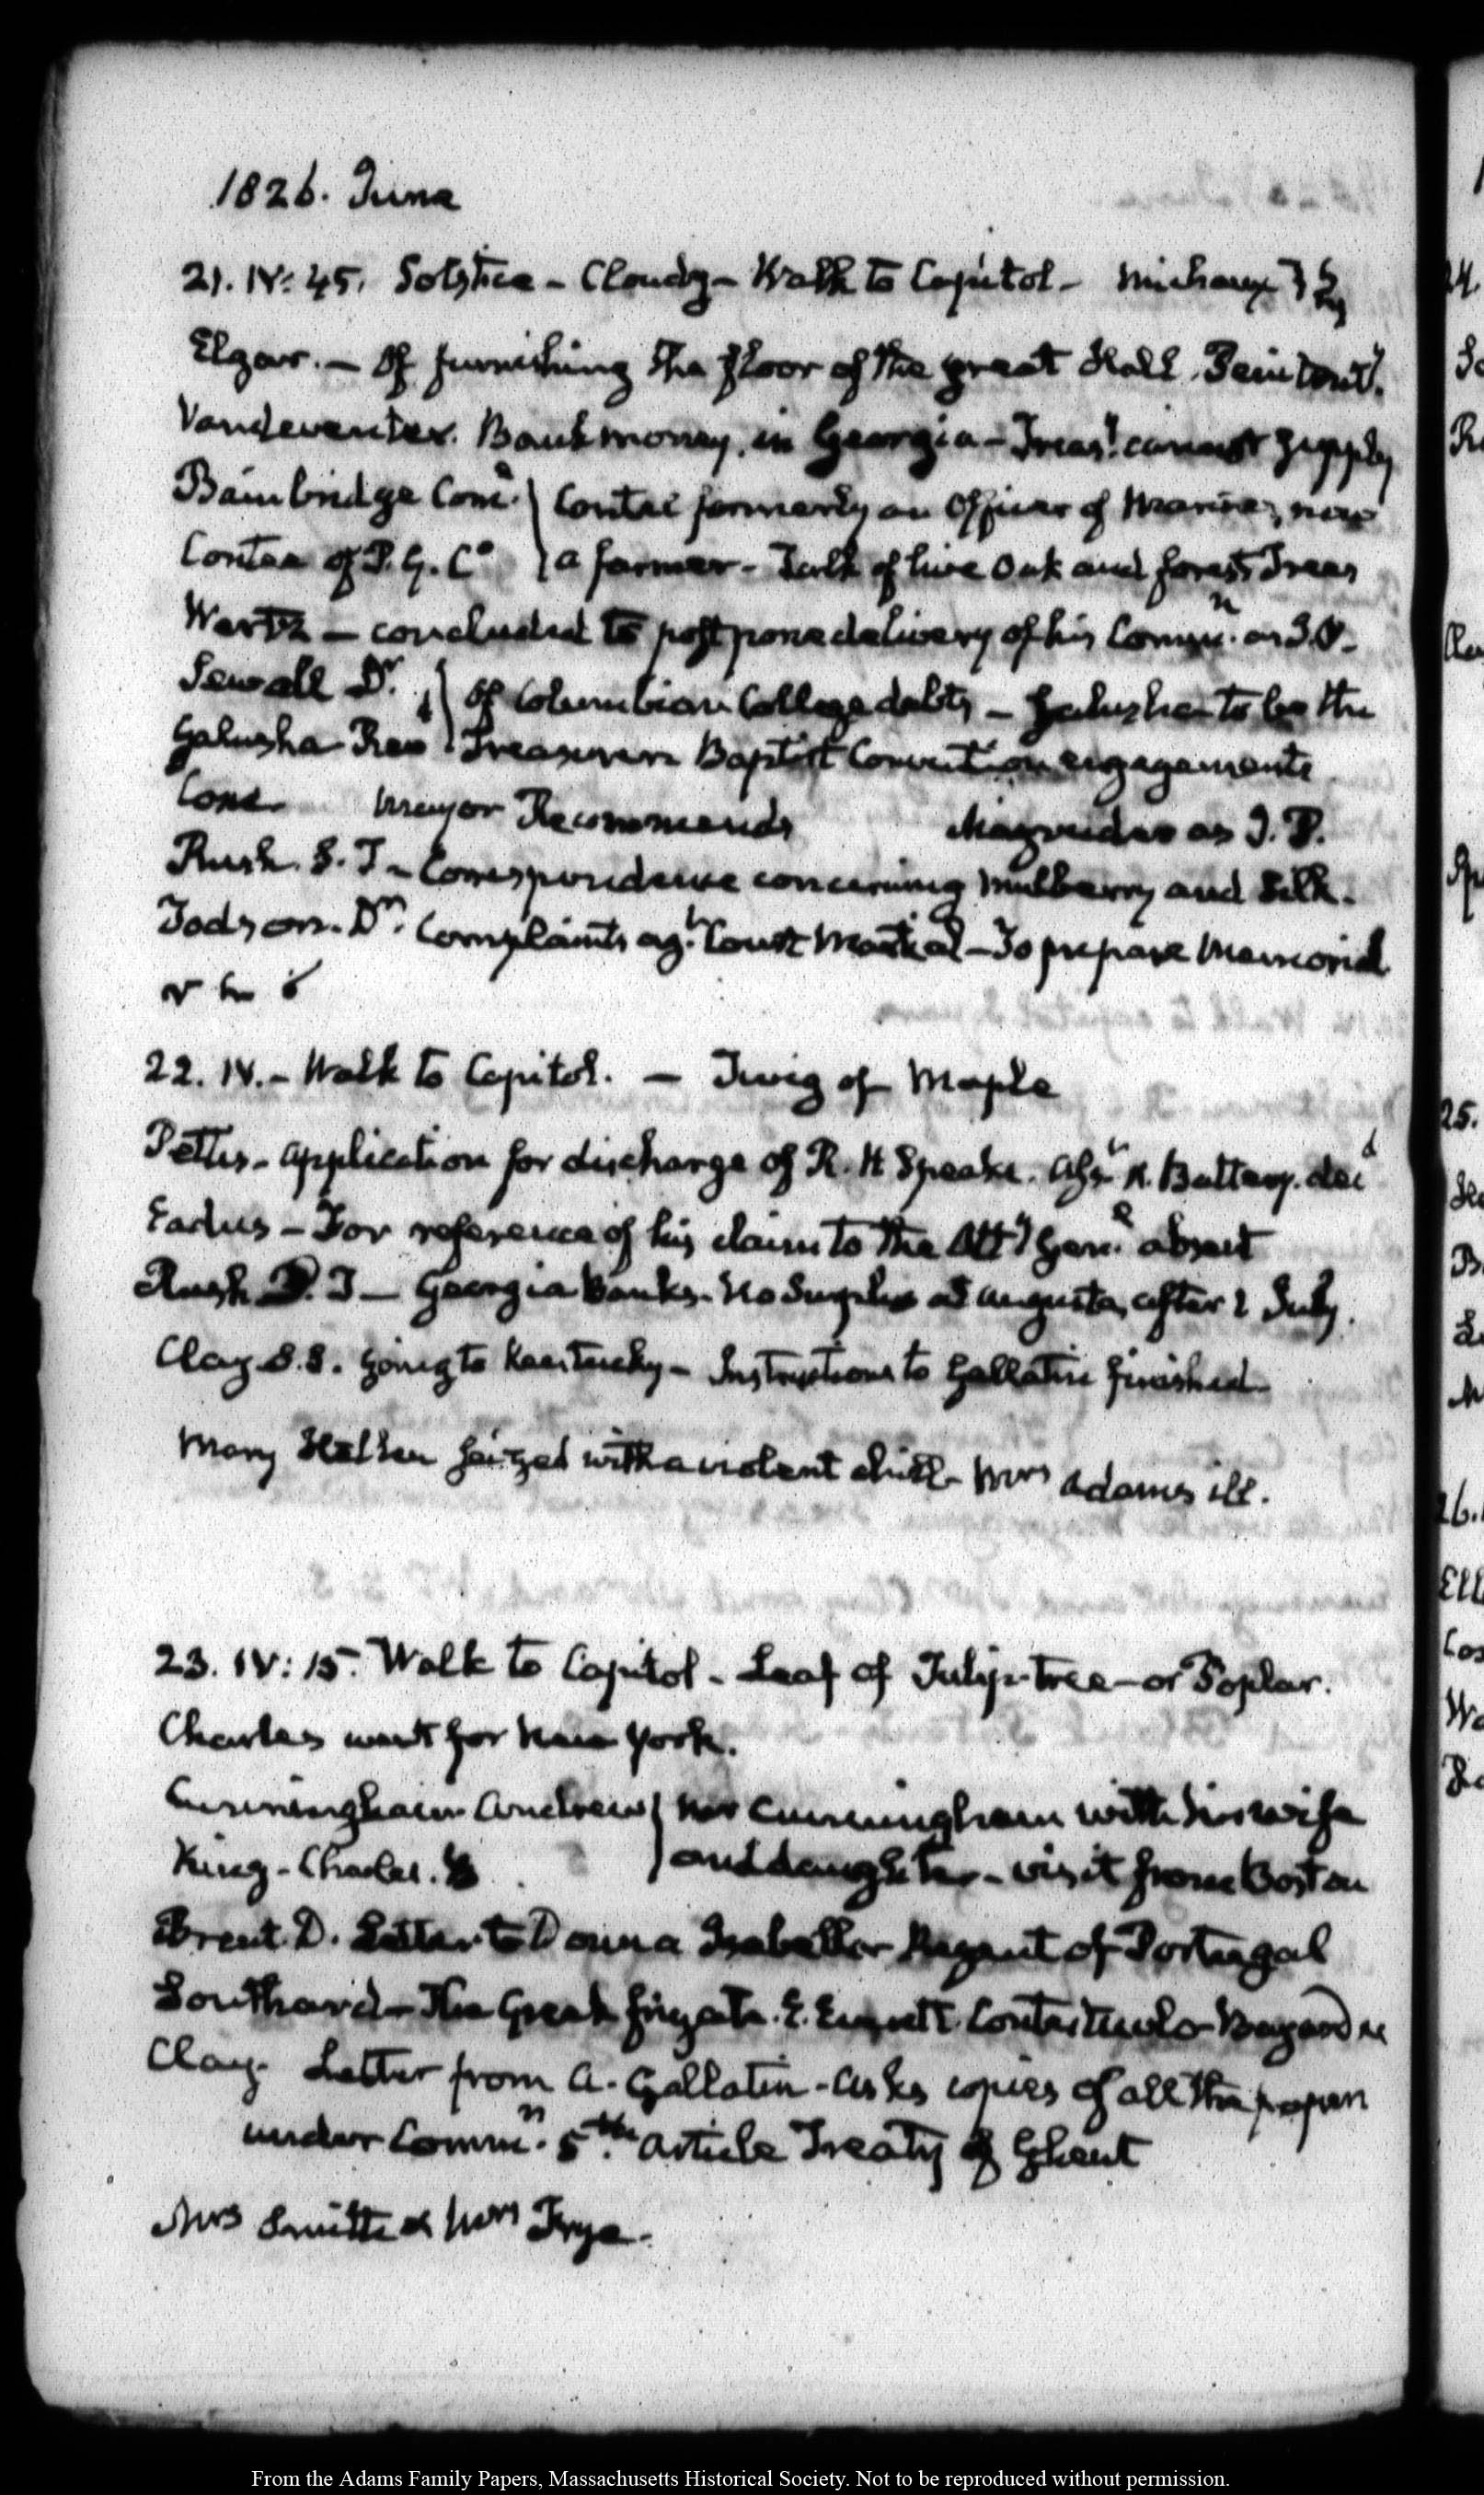 1826. June
21. IV: 45. Solstice - Cloudy - Walk to Capitol - Michaux
Elgar. - Of furnishing the floor of the great Hall. Penitent.y
Vandeventer. Bank money in Georgia - Treas.y cannot supply
Bainbridge Com.e } Contee formerly an Officer of Marines, now
Contee of P. G. C.o } a farmer - Talk of live Oak and forest Trees
Wertz - concluded to postpone delivery of his Comm.n as
Sewall D.r } Of Columbian College debts - Galusha to be the
Galusha Rev } Treasurer Baptist Convention engagements
Cone Mayor Recommends Magruder as J. P.
Rush. S. T - Correspondence concerning Mulberry and Silk.
Todson. D.r Complaints ag.t Court Martial - To prepare Memorial
22. IV. - Walk to Capitol. - Twig of Maple
Pettis - application for discharge of R. H Speake. of Battery.
Eadus - For reference of his claim to the Att.y Gen.l absent
Rush S. T - Georgia Banks. No Supplies at Augusta, after 1 July.
Clay S. S. going to Kentucky - Instructions to Gallatin finished
Mary Hellen seized with a violent chill - Mrs Adams ill.
23. IV: 15. Walk to Capitol - Leaf of Tulip-tree - or Poplar.
Charles went for New York.
Cunningham Andrew } Mr Cunningham with his wife
King - Charles. } and daughter - visit from Boston
Brent. D. Letter to Donna Isabella Regent of Portugal
Southard - The Greek frigate. E. Everett.
Clay. Letter from A. Gallatin - asks copies of all the papers
under Comm.n 5.th Article Treaty of Ghent
Mrs Smith & Mrs Frye.
From the Adams Family Papers, Massachusetts Historical Society. Not to be reproduced without permission.